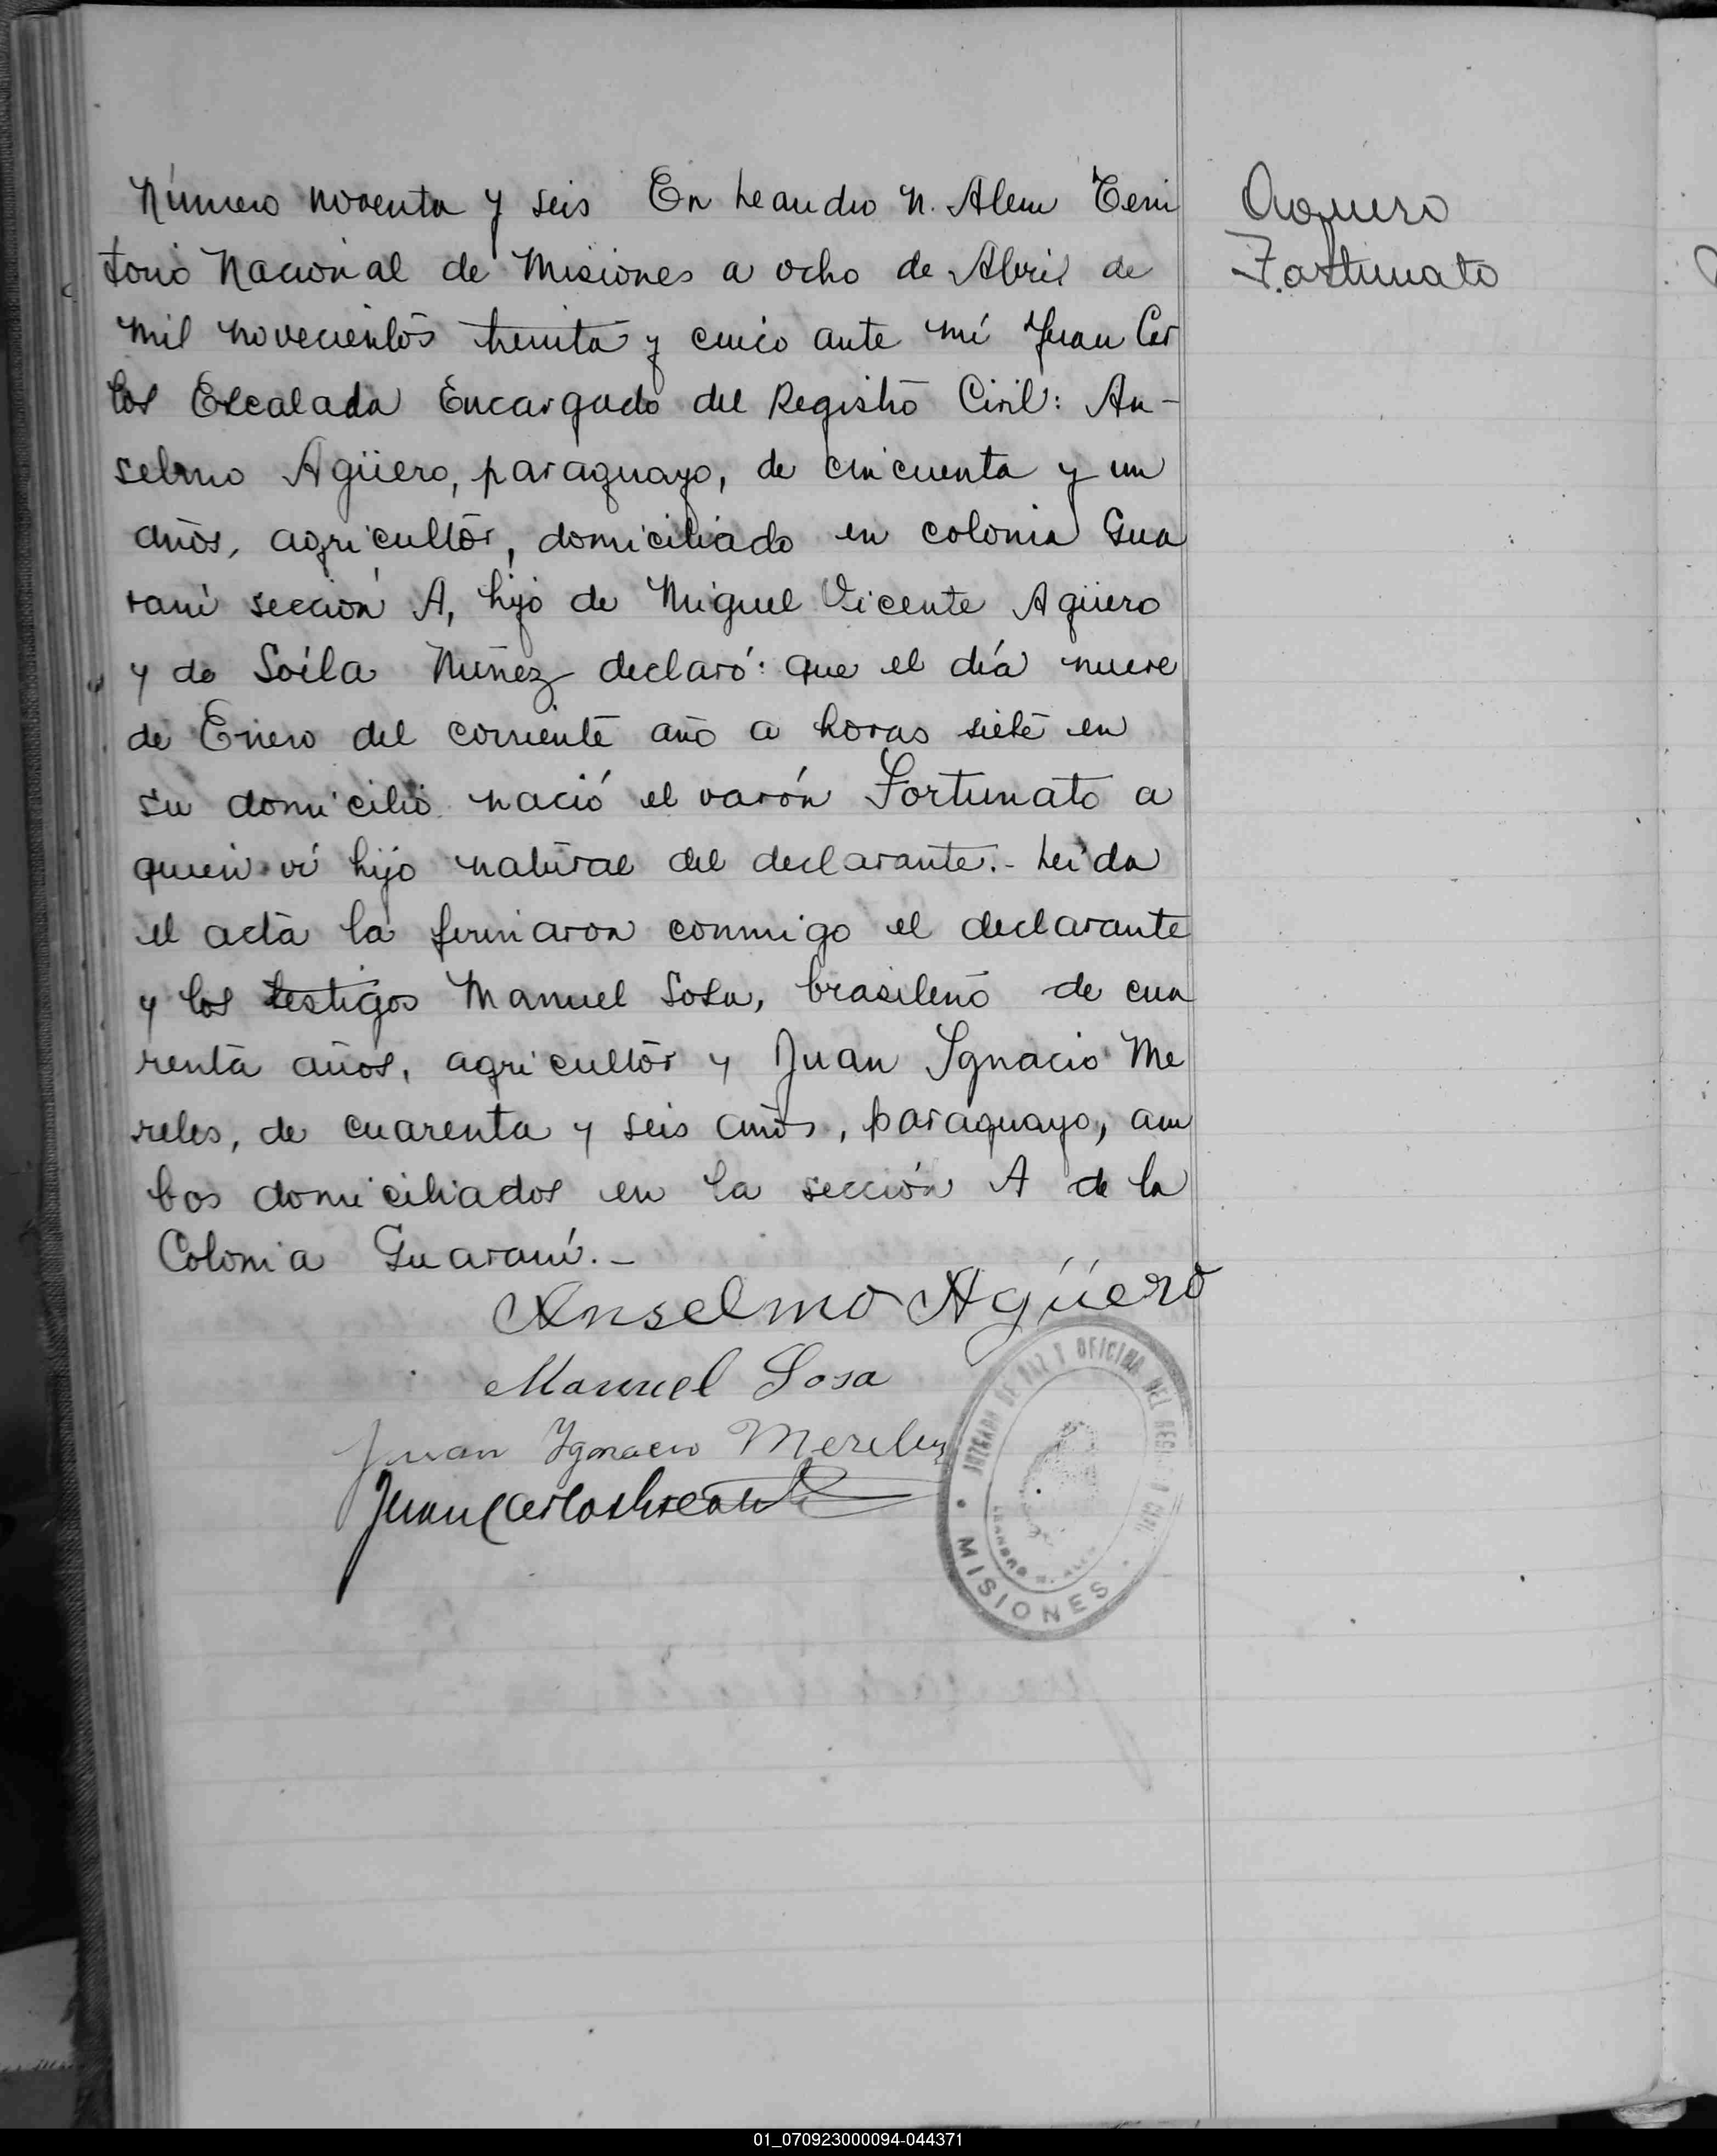 Número noventa y seis En Leandro N. Alem Terri
torio Nacional de Misiones a ocho de Abril de
mil novecientos treinta y cinco ante mí Juan Car
los Escalada Encargado del Registro Civil: An-
selmo Agüero, paraguayo, de cincuenta y un
años, agricultor, domiciliado en colonia Gua
raní sección A, hijo de Miguel Vicente Agüero
y de Soila Nuñez declaró: que el día nueve
de Enero del corriente año a horas siete en
su domicilio nació el varón Fortunato a
quien ví hijo natural del declarante.- Leída
el acta la firmaron conmigo el declarante
y los testigos Manuel Sosa, brasileño de cua
renta años, agricultor y Juan Ignacio Me
reles, de cuarenta y seis años, paraguayo, am
bos domiciliados en la sección A de la
Colonia Guaraní.-
Aguero
Fortunato
Anselmo Agüero
Manuel Sosa
Juan Ygnacio Mereles
Juan Carlos Escalada
JUZGADO DE PAZ Y OFICINA DEL REGISTRO CIVIL
LEANDRO N. ALEM
MISIONES
01_070923000094-044371